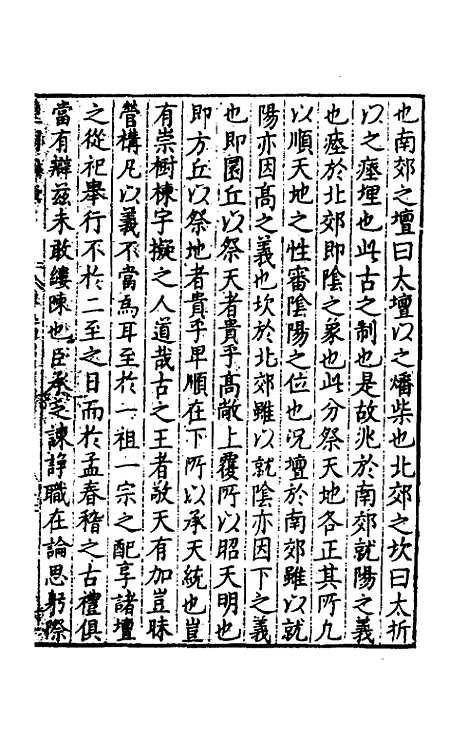 也南郊之壇曰太壇以之燔柴也北郊之坎曰太折
以之瘞埋也此古之制也是故兆於南郊就陽之義
也瘞於北郊即陰之象也此分祭天地各正其所凡
以順天地之性審陰陽之位也况壇於南郊雖以就
陽亦因高之義也坎於北郊雖以就陰亦因下之義
也即圜丘以祭天者貴乎高敞上覆所以昭天明也
即方丘以祭地者貴乎卑順在下所以承天統也豈
有崇樹棟宇擬之人道哉古之王者敬天有加豈昧
管構凡以義不當為耳至於一祖一宗之配享諸壇
之從祀舉行不於二至之日而於孟春稽之古禮俱
當有辯兹未敢縷陳也臣承乏諫諍職在論思躬際